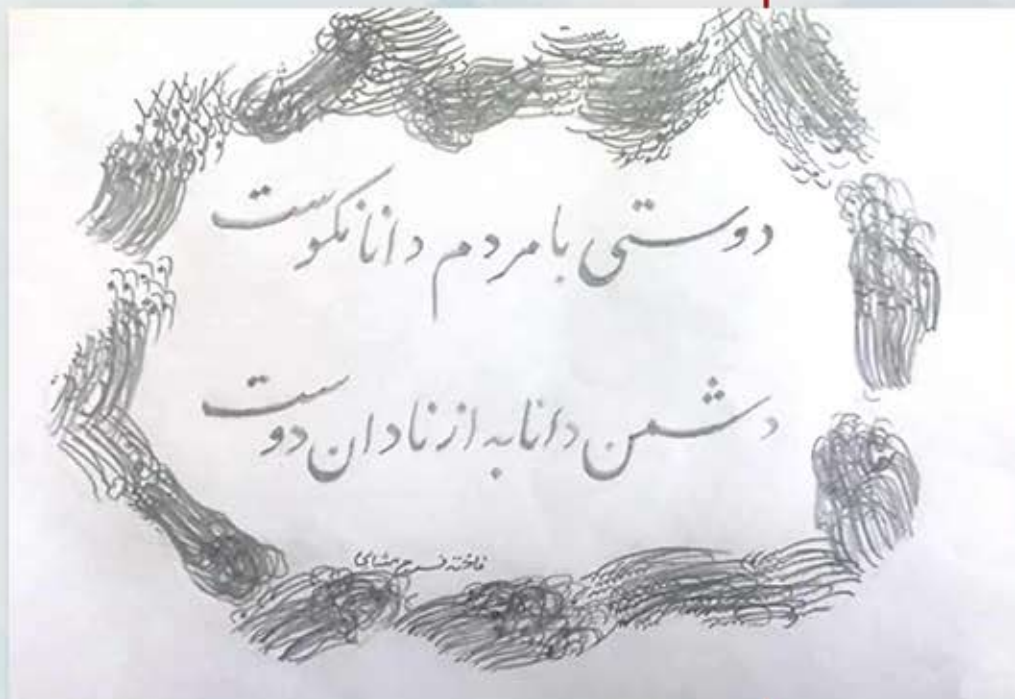 دوستی با مردم دانا نکوست
دشمن دانا به از نادان دوست
فاخته